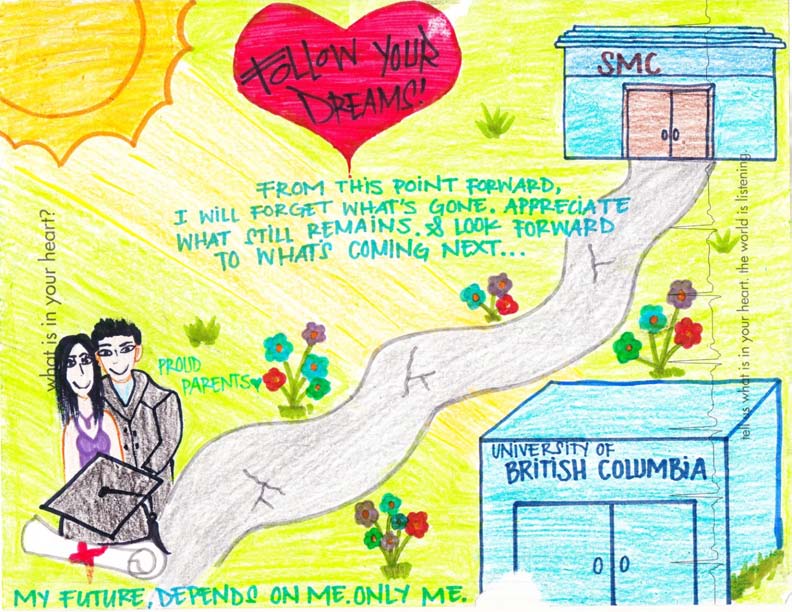 FOLLOW YOUR
DREAMS!
SMC
FROM THIS POINT FORWARD,
I WILL FORGET WHAT'S GONE. APPRECIATE
WHAT STILL REMAINS. & LOOK FORWARD
TO WHAT'S COMING NEXT...
what is in your heart?
tell us what is in your heart. the world is listening.
PROUD
PARENTS
UNIVERSITY OF
BRITISH COLUMBIA
MY FUTURE, DEPENDS ON ME. ONLY ME.